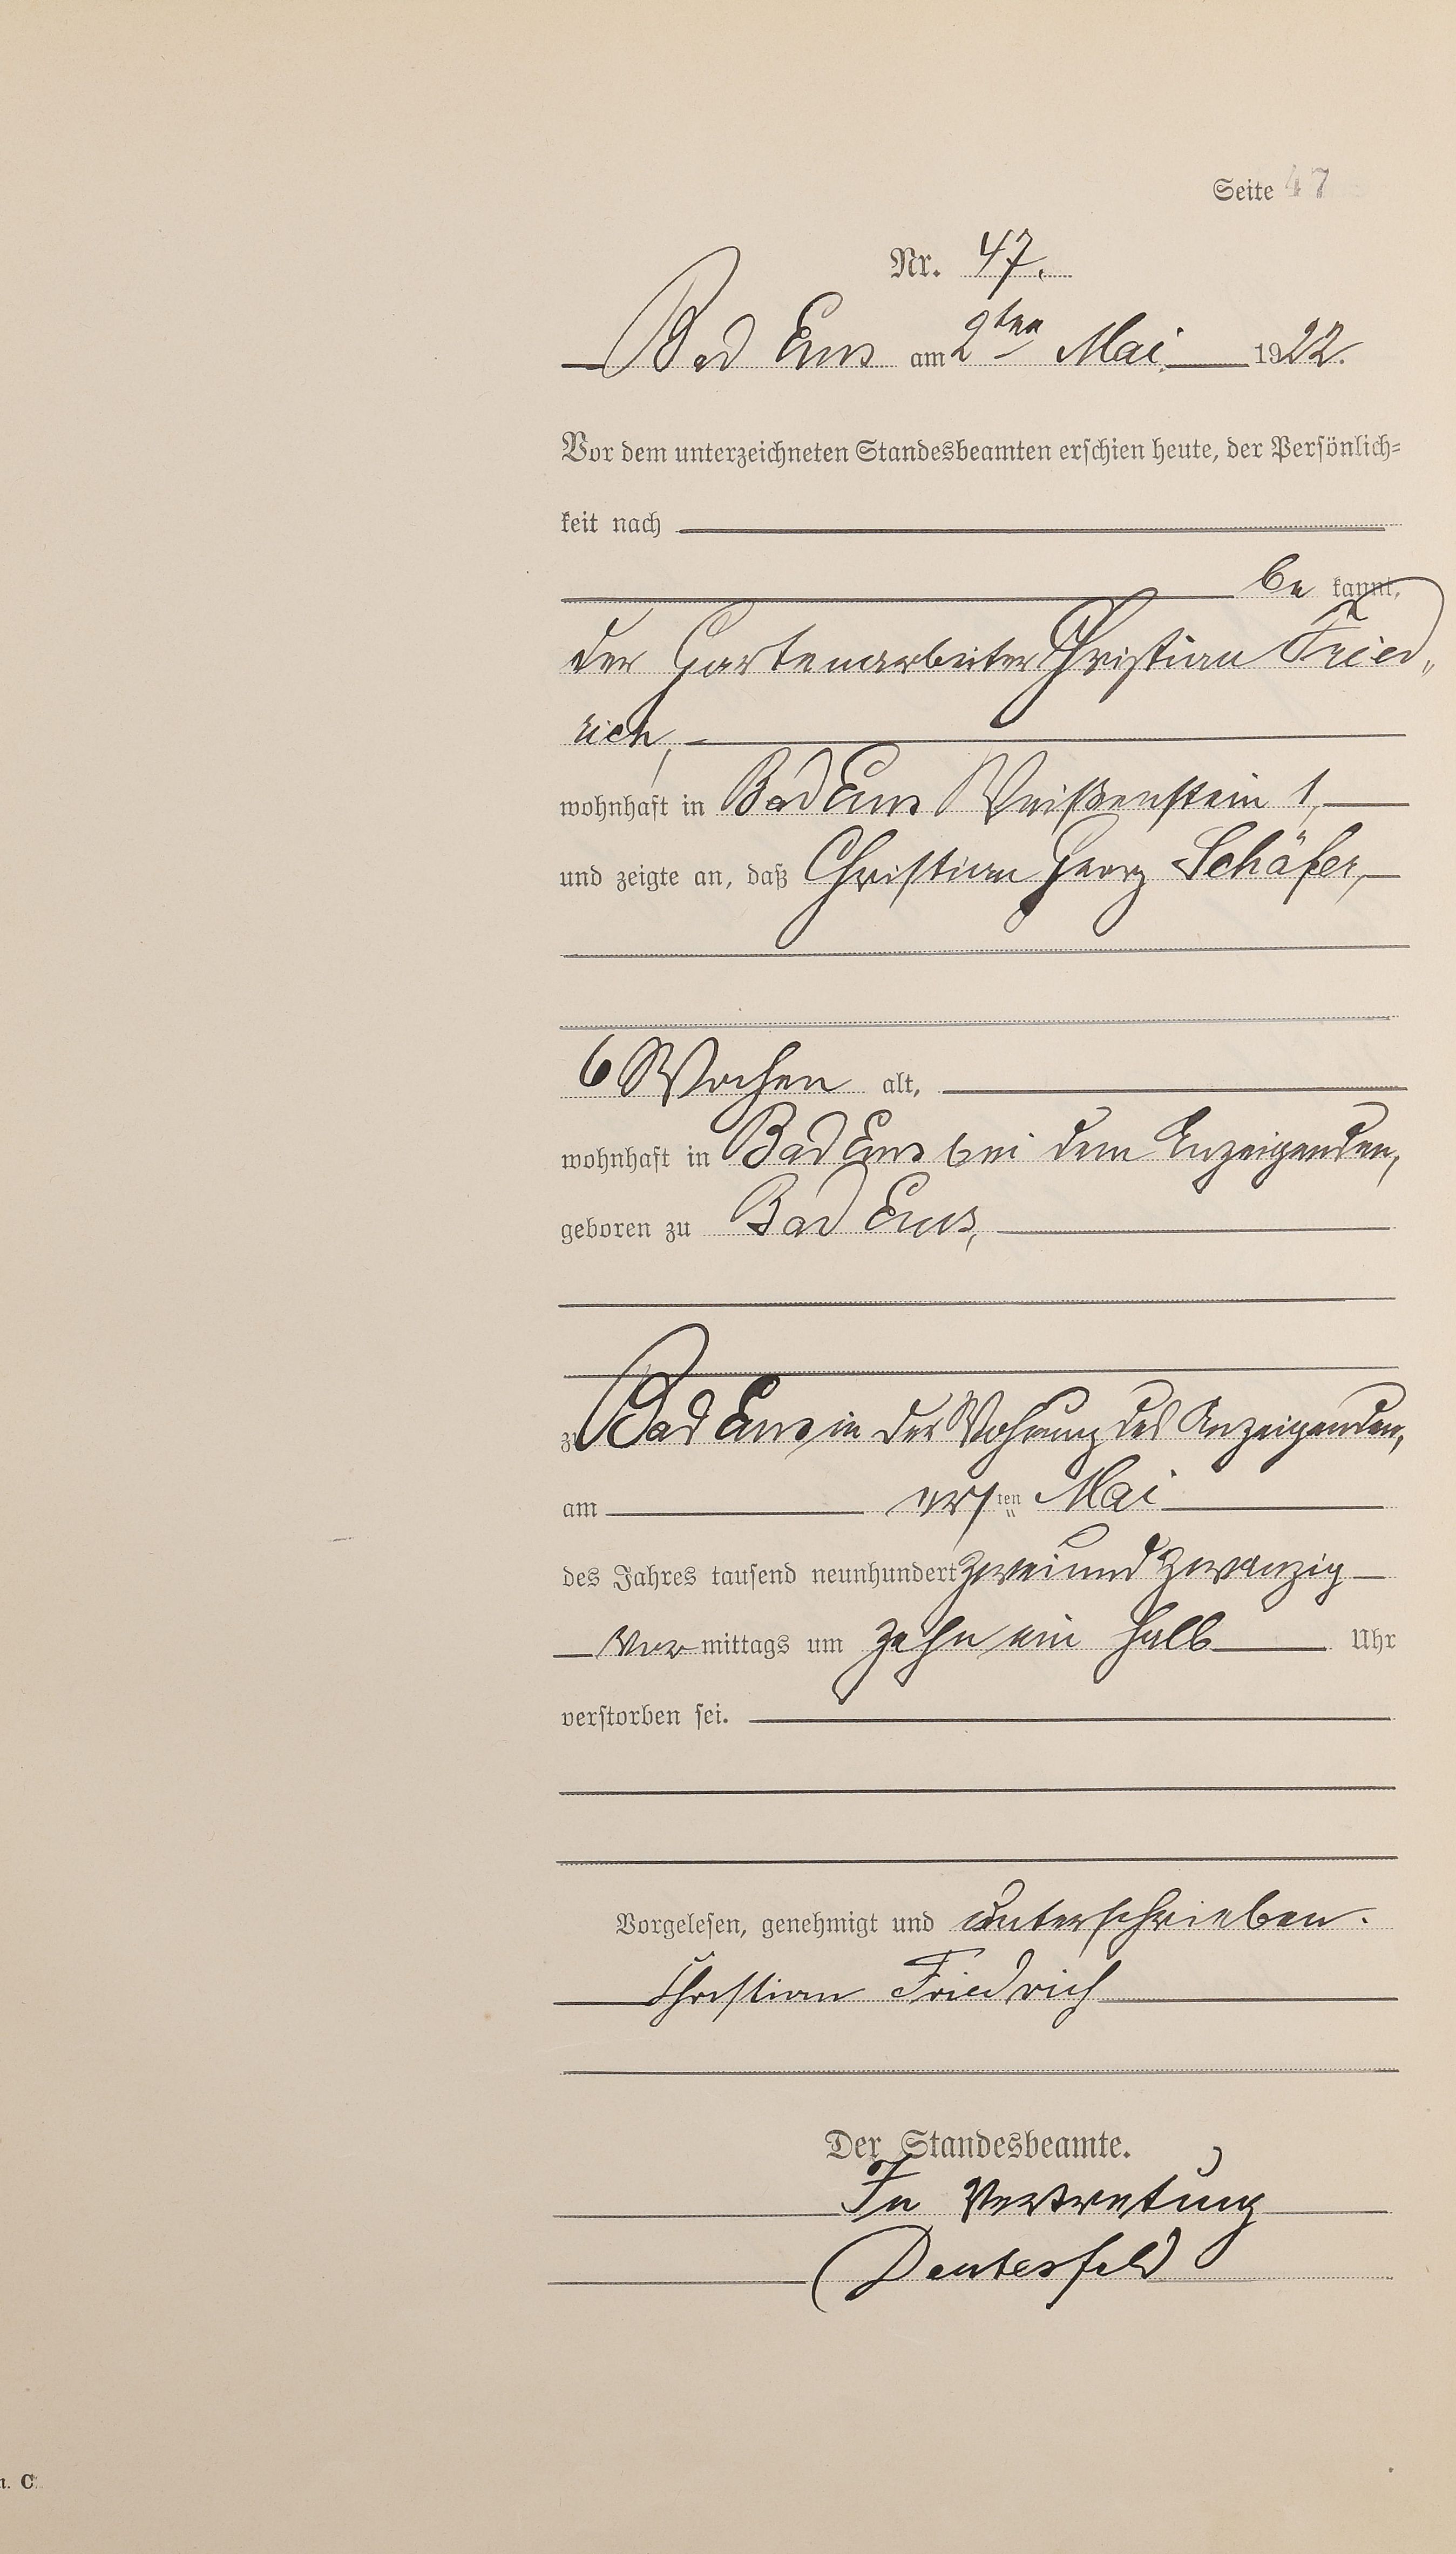 Seite 47
Nr. 47.
Bad Ems am 2ten Mai 1922.
Vor dem unterzeichneten Standesbeamten erschien heute, der Persönlich-
keit nach
be kannt,
der Gartenarbeiter Christian Fried„
rich,
wohnhaft in Bad Ems Weißenstein 1,
und zeigte an, daß Christian Georg Schäfer,
6 Wochen alt,
wohnhaft in Bad Ems bei dem Anzeigenden,
geboren zu Bad Ems,
zu Bad Ems in der Wohnung des Anzeigenden,
am ersten Mai
des Jahres tausend neunhundert zweiundzwanzig
Vor mittags um zehn ein halb Uhr
verstorben sei.
Vorgelesen, genehmigt und unterschrieben.
Christian Friedrich
Der Standesbeamte.
In Vertretung
Deutesfeld
C